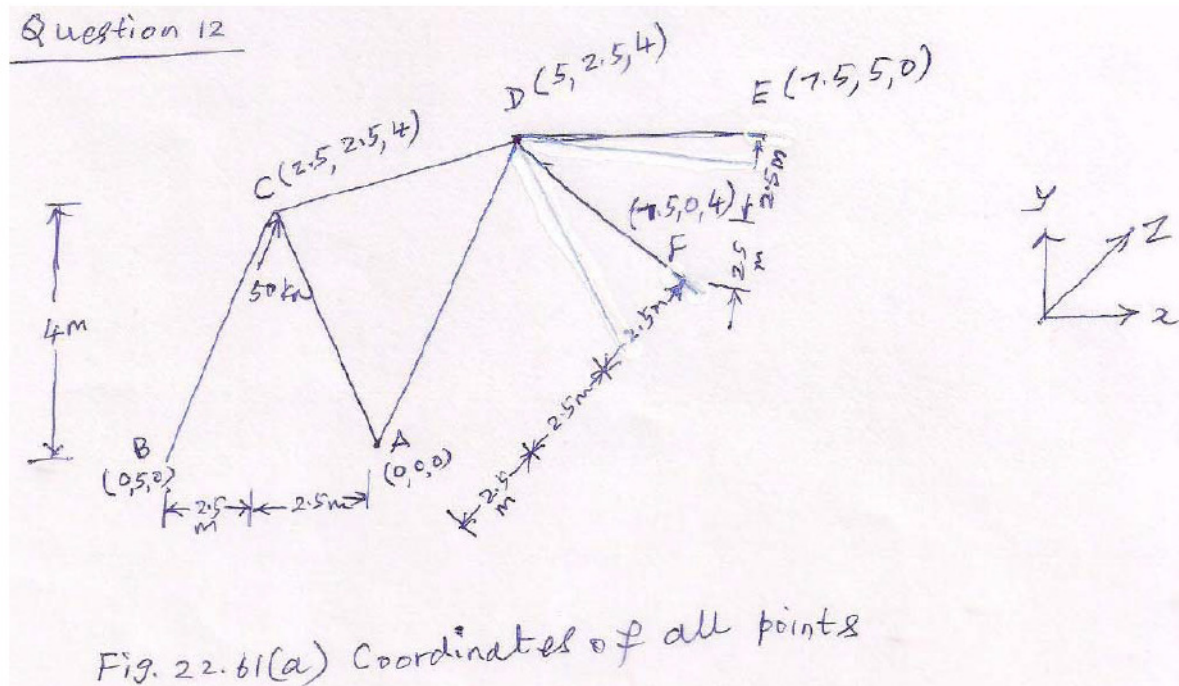 Question 12
D (5, 2.5, 4)
E (7.5, 5, 0)
C (2.5, 2.5, 4)
2.5m
(7.5, 0, 4)
F
2.5
m
50kn
4m
2.5m
2.5m
2.5
m
B
(0,5,0)
A
(0,0,0)
2.5
m
2.5m
y
z
x
Fig. 22.61(a) Coordinates of all points